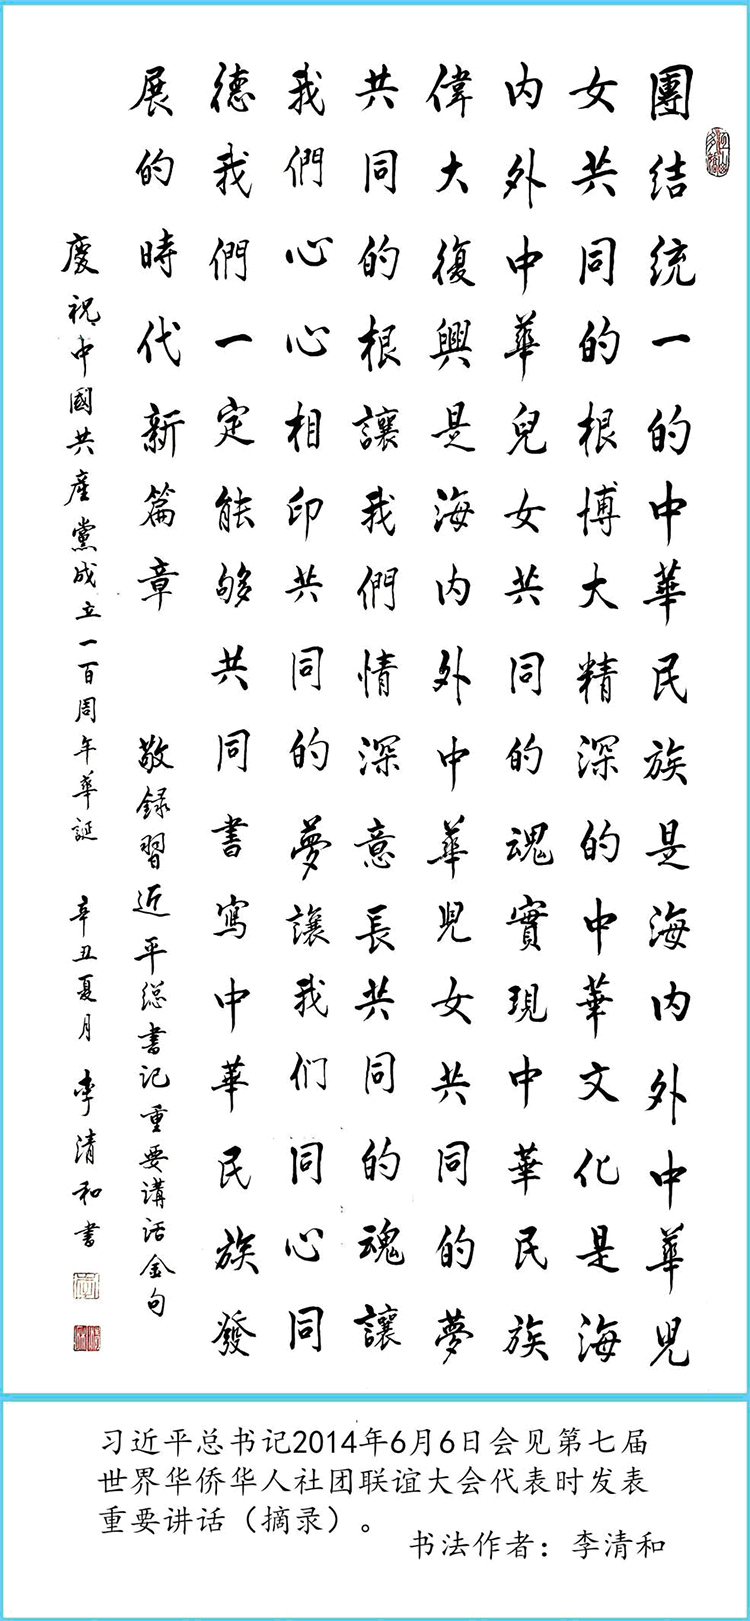 團结统一的中華民族是海内外中華兒
女共同的根博大精深的中華文化是海
内外中華兒女共同的魂實現中華民族
偉大復興是海内外中華児女共同的夢
共同的根讓我們情深意长共同的魂讓
我們心心相印共同的夢讓我们同心同
德我們一定能够共同書寫中華民族發
展的時代新篇章
敬録習近平総書记重要講话金句
慶祝中國共產黨成立一百周年華誕 辛丑夏月 李清和書
习近平总书记2014年6月6日会见第七届
世界华侨华人社团联谊大会代表时发表
重要讲话（摘录）。
书法作者：李清和